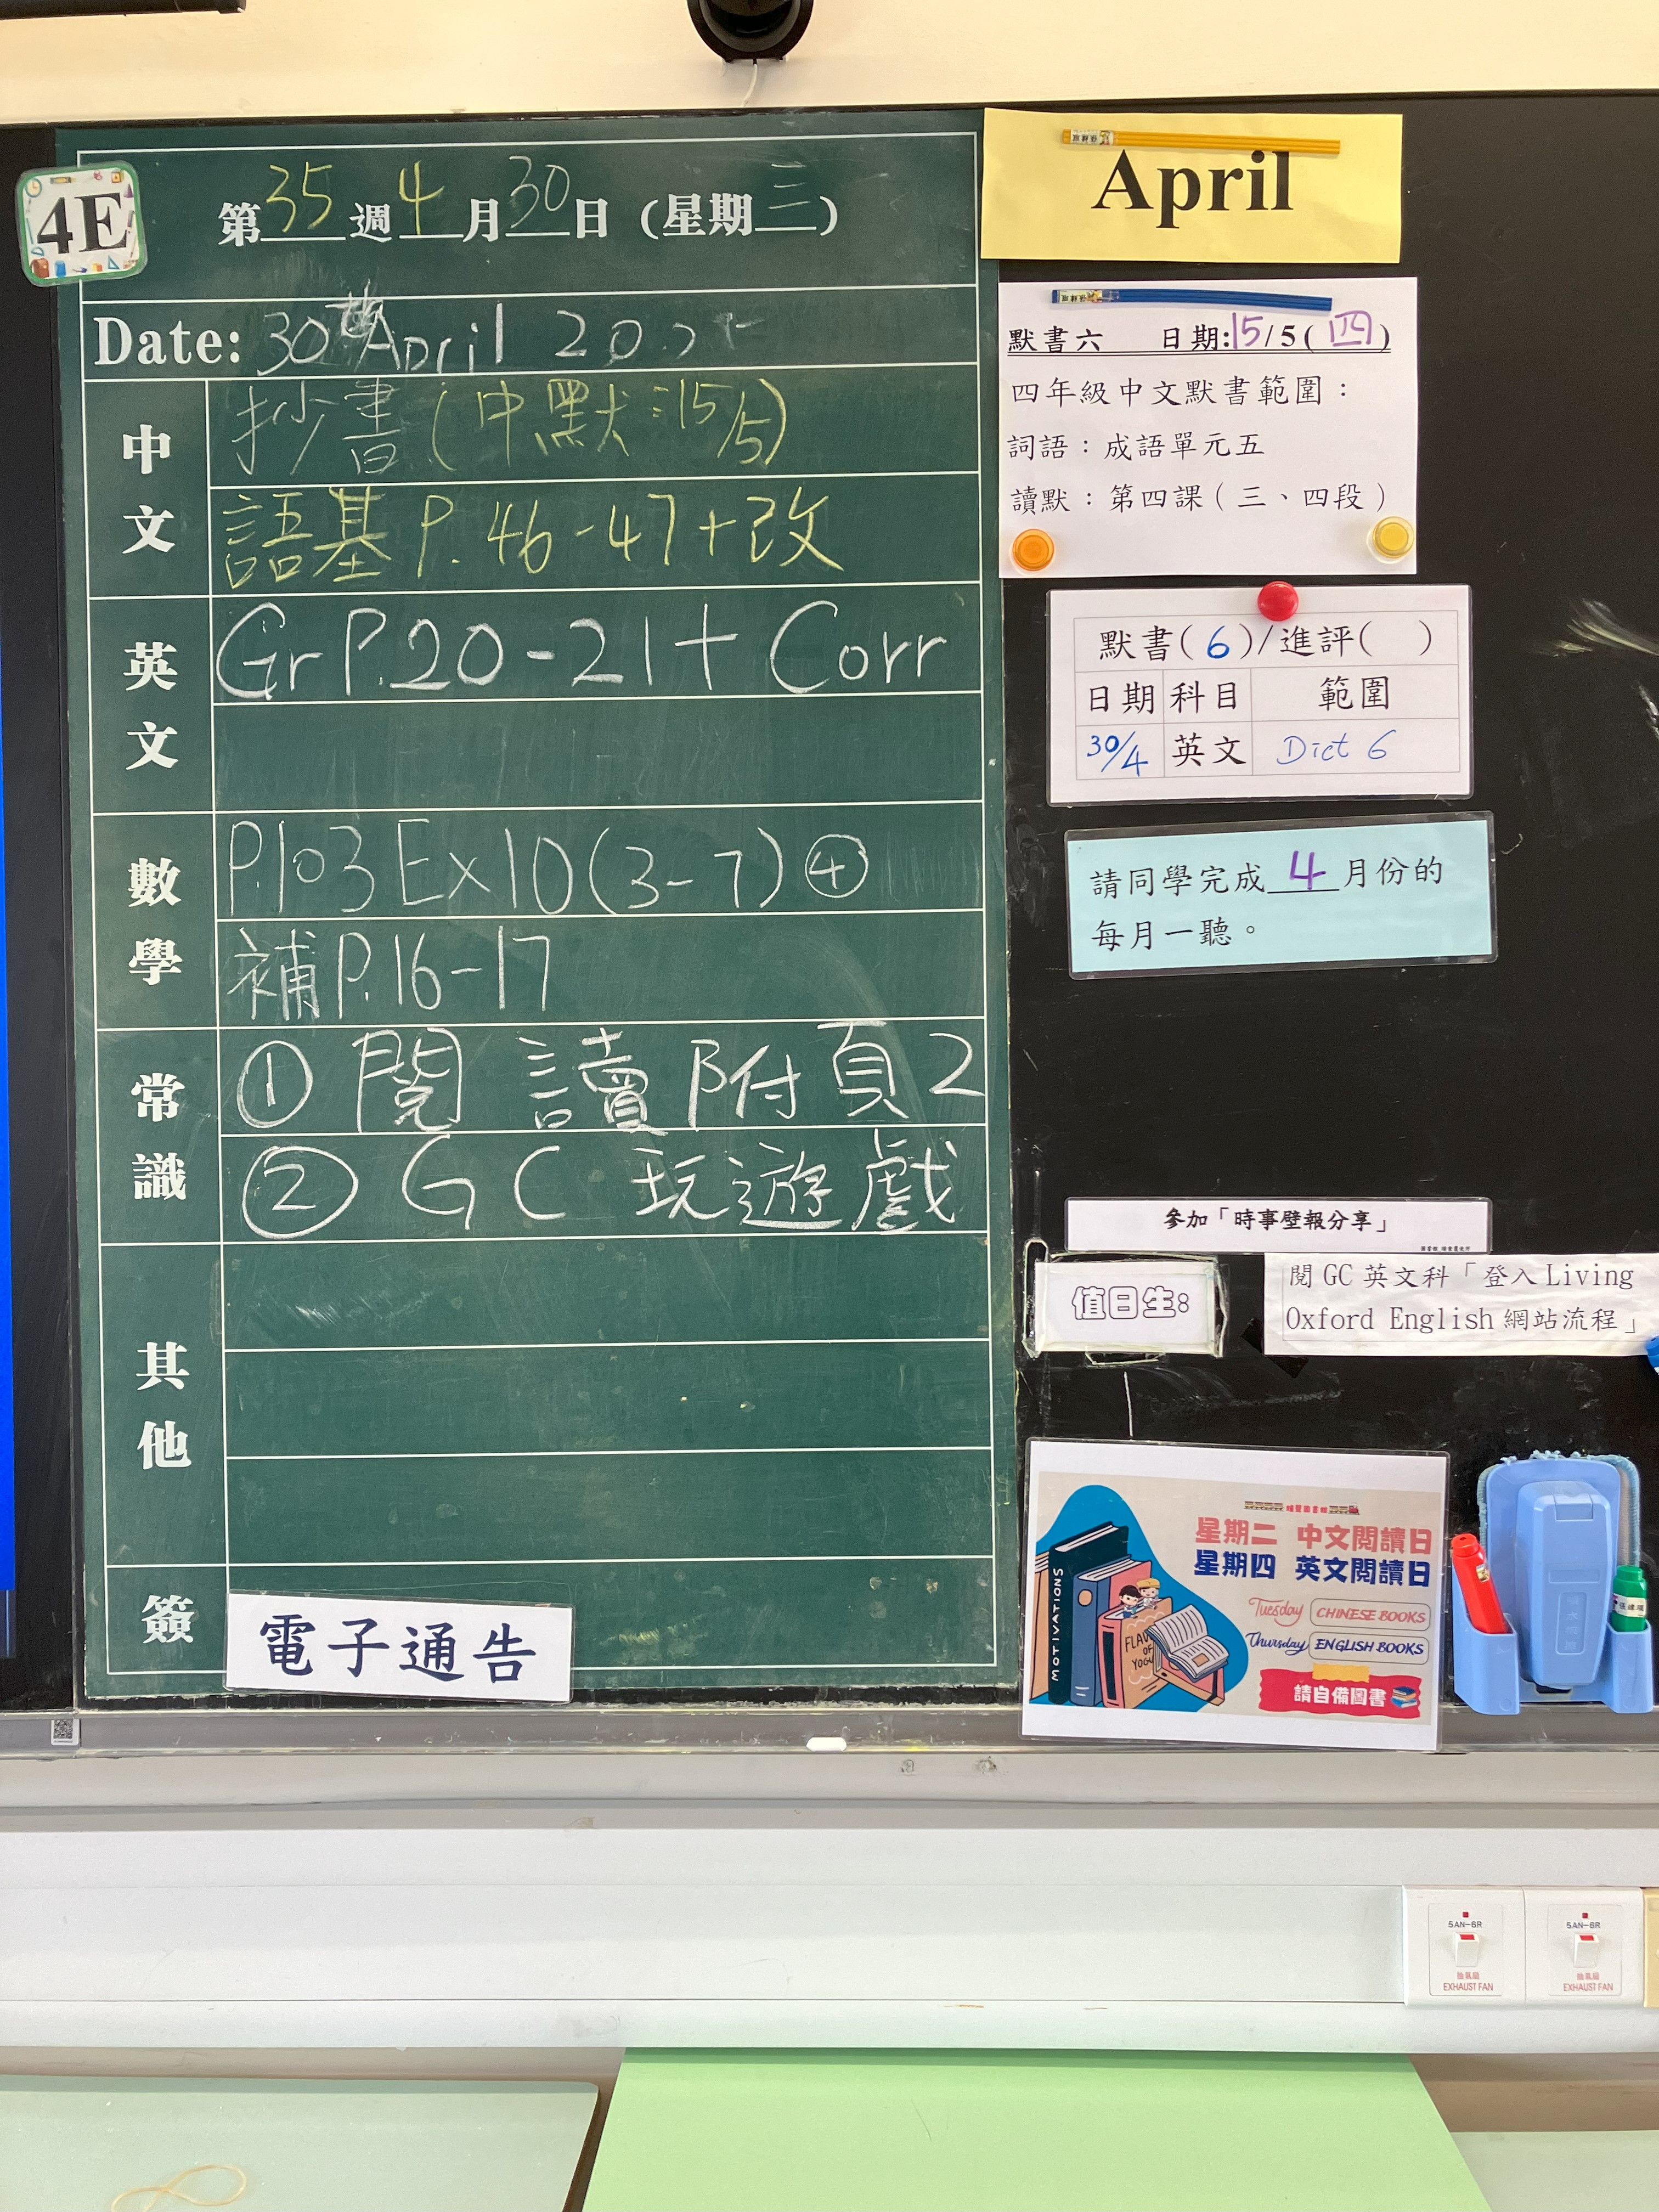 4E
第35週4月30日（星期三）
Date: 30th April 2025
中文
抄書(中默:15/5)
語基P.46-47+改
英文
Gr P.20-21+ Corr
數學
P.103 Ex10(3-7)④
補P.16-17
常識
① 閱讀附頁2
② GC 玩遊戲
其他
簽
電子通告
April
默書六 日期:15/5(四)
四年級中文默書範圍：
詞語：成語單元五
讀默：第四課（三、四段）
默書(6)/進評( )
日期 科目 範圍
30/4 英文 Dict 6
請同學完成4月份的
每月一聽。
參加「時事壁報分享」
值日生:
閱 GC 英文科「登入 Living
Oxford English 網站流程」
星期二 中文閱讀日
星期四 英文閱讀日
Tuesday CHINESE BOOKS
Thursday ENGLISH BOOKS
請自備圖書
MOTIVATIONS
5AN-6R
抽氣扇
EXHAUST FAN
5AN-6R
抽氣扇
EXHAUST FAN